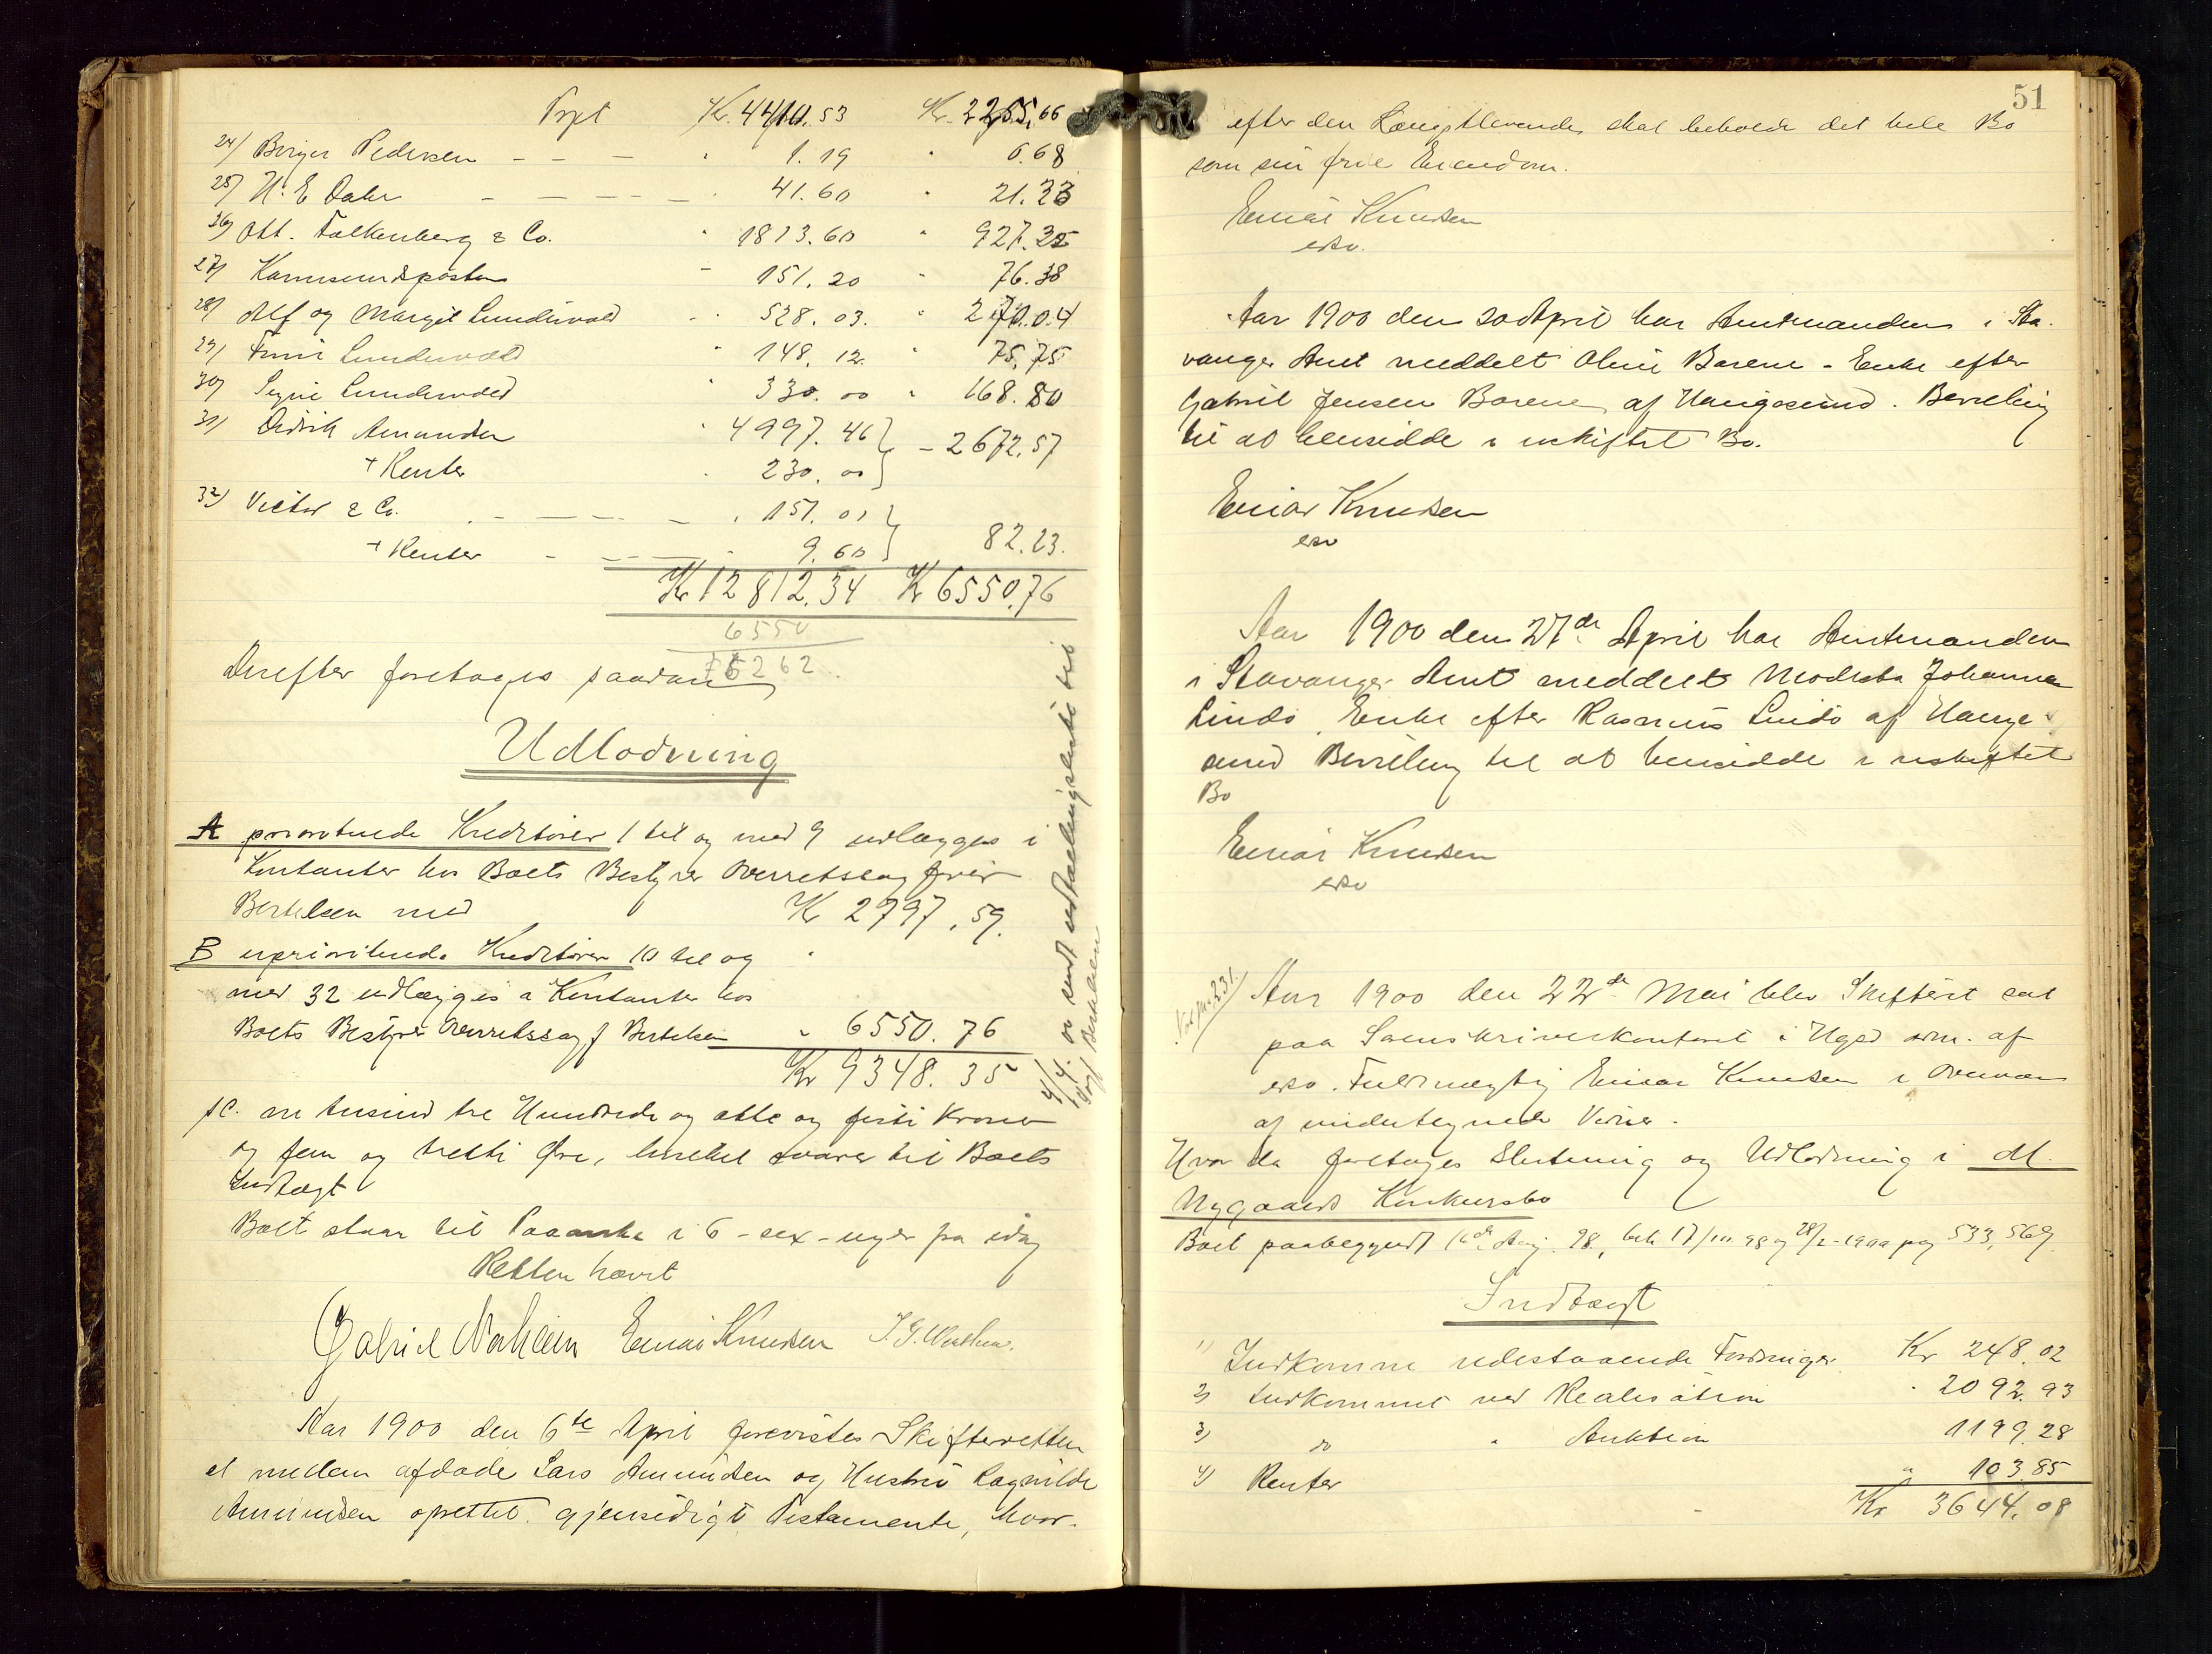 Trpt Kr. 4410.53 Kr. 2255,66
24) Birger Pedersen - - - " 1.19 " 0.68
25) H. E Dahr - - - - " 41.60 " 21.33
26) Ott. Falkenberg & Co. " 1813.60 " 927.35
27) Karmsundsposten " 151.20 " 76.38
28) Alf og Margit Lundevold " 528.03. " 270.04
29) Lundevold " 148.12. " 75,75
30) Signe Lundevold " 330.00 " 168.80
31) Didrik Amundsen " 4997.46 } - 2672.57
+ Renter " 230.00 }
32) Victor & Co. - - - - " 151.01 }
+ Renter - - - " 9.60 } 82.23.
Kr 12812.34 Kr 6550.76
6550
6262
Derefter foretoges saadan
Udlodning
A prioriterede Kreditorer 1 til og med 9 udlægges i
Kontanter hos Boets Bestyrer Overretssagfører
Bertelsen med Kr 2797,59.
B uprioriterede Kreditorer 10 til og "
med 32 udlægges i Kontanter hos
Boets Bestyrer Overretssagf Bertelsen " 6550.76
Kr 9348.35
sc. ni tusind tre Hundrede og otte og firti Kroner
og fem og tretti Øre, hvilket svarer til Boets
Indtægt
Boet staar til Paaanke i 6 - sex - uger fra idag
Retten hævet
Gabriel Einar Knudsen
4/4. 00 sendt udbetalingsliste til
Sagf Bertelsen
Aar 1900 den 6te April forevistes Skifteretten
et mellem afdøde Lars Amundsen og Hustru Ragnilde
Amundsen oprettet gjensidigt Testamente, hvor-
51
efter den Længstlevende skal beholde det hele Bo
som sin frie Eiendom.
Einar Knudsen
exo.
Aar 1900 den 20 April har Amtmanden i Sta-
vanger Amt meddelt Oline Barene - Enke efter
Gabriel Jensen Barene af Haugesund. Bevilling
til at hensidde i uskiftet Bo.
Einar Knudsen
exo
Aar 1900 den 27de April har Amtmanden
i Stavanger Amt meddelt Modesta Johanna
Lindø, Enke efter Rasmus Lindø af Hauge-
sund Bevilling til at hensidde i uskiftet
Bo
Einar Knudsen
exo
231.
Aar 1900 den 22de Mai blev Skifteret sat
paa Sorenskriverkontoret i Hgsd adm. af
exo. Fuldmægtig Einar Knudsen i Overvær
af undertegnede Vidner.
Hvor da foretoges Slutning og Udlodning i M.
Nygaards Konkursbo
Boet paabegyndt 16de Aug. 98., beh 17/10.98 og 28/2-1900 pag 533, 569
Indtægt
1) Indkomne udestaaende Fordringer. Kr 248.02
2) Indkommet ved Realisation " 2092.93
3) do " Auktion 1199.28
4) Renter " 103.85
Kr 3644.08